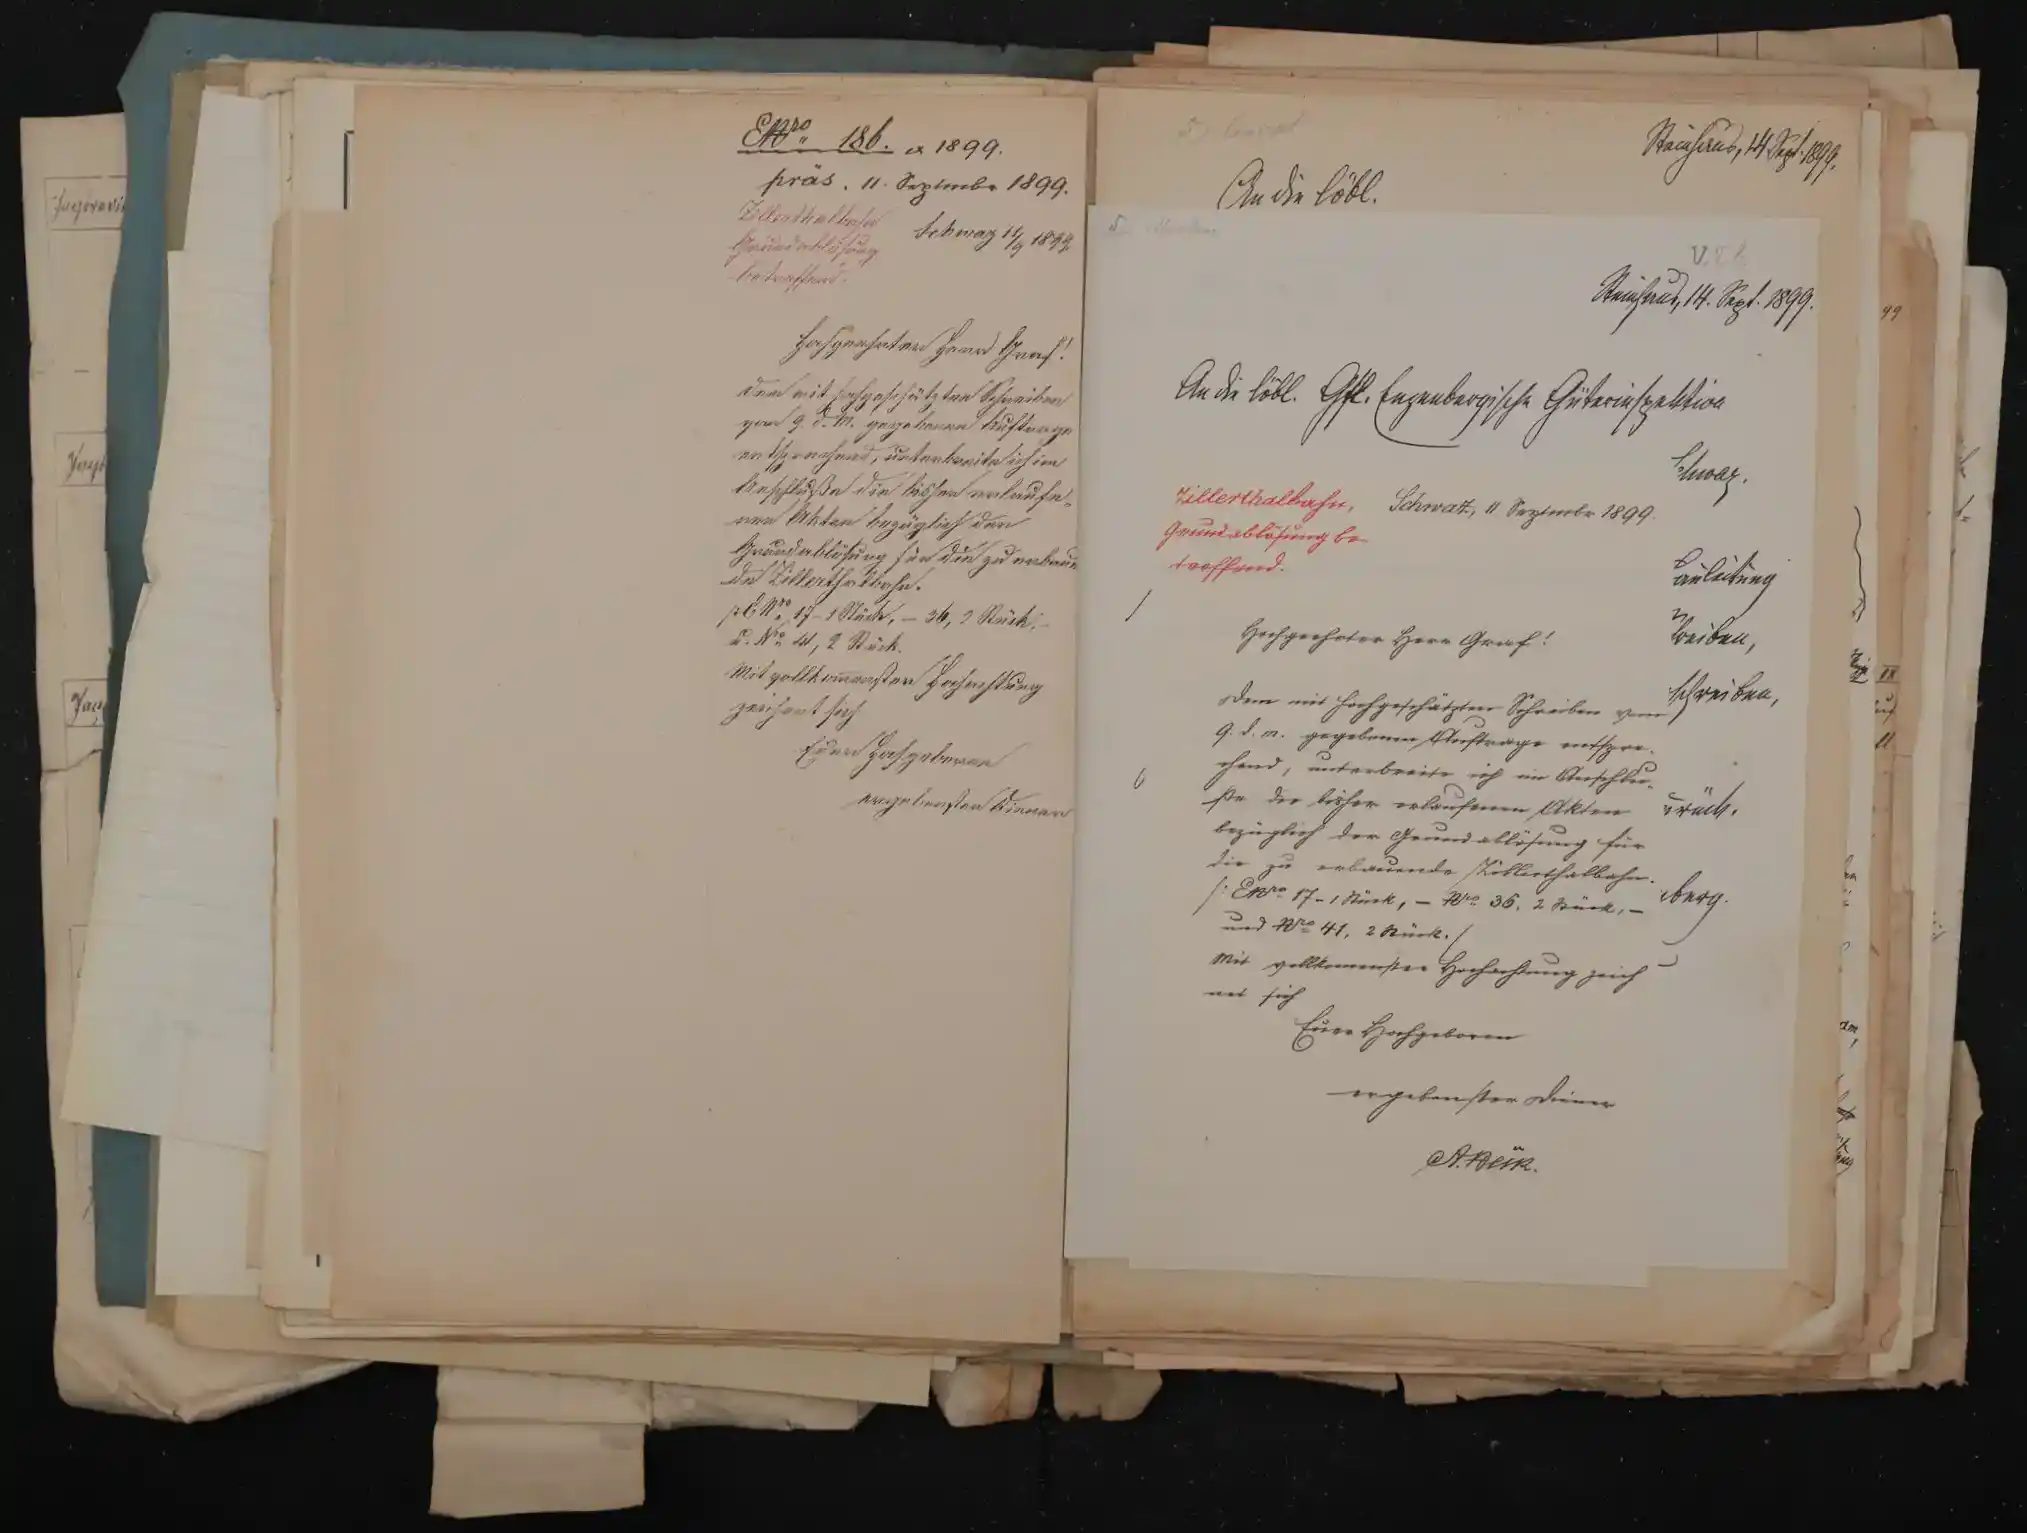 ENro 186. a 1899.
präs. 11. September 1899.
Zillerthalbahn
Grundablösung
betreffend.
Schwaz 11/9 1899
Hochgeehrter Herr Graf!
Dem mit hochgeschätzten Schreiben
vom 9. d. M. gegebenen Auftrage
entsprechend, unterbreite ich im
Anschluße die bisher erlaufe-
nen Akten bezüglich der
Grundablösung für die zu erbauen
de Zillerthalbahn.
/: E Nro 17 - 1 Stück, - 36, 2 Stück, -
u. Nro 41, 2 Stück.
Mit vollkommenster Hochachtung
zeichnet sich
Euer Hochgeboren
ergebenster Diener
Steinhaus, 14 Sept. 1899.
An die löbl.
Steinhaus, 14. Sept. 1899.
An die löbl. Gfl. Enzenbergische Güterinspektion
Schwaz.
Zillerthalbahn,
Grundablösung be-
treffend.
Schwatz, 11 September 1899.
Hochgeehrter Herr Graf!
Dem mit hochgeschätzten Schreiben vom
9. d. M. gegebenen Auftrage entspre-
chend, unterbreite ich im Anschlu-
ße die bisher erlaufenen Akten
bezüglich der Grundablösung für
die zu erbauende Zillerthalbahn.
/: ENro 17 - 1 Stück, - Nro 36. 2 Stück, -
und Nro 41, 2 Stück. /
Mit vollkommenster Hochachtung zeich
net sich
Euer Hochgeboren
ergebenster Diener
schreiben,
berg.